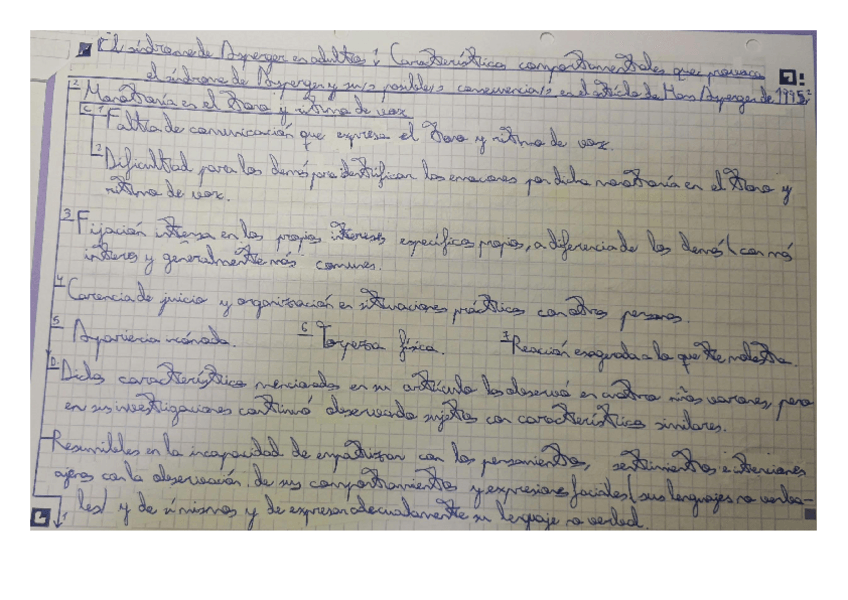 El síndrome de Asperger en adultos: Características comportamentales que provoca
el síndrome de Asperger y su/s posible/s consecuencia/s en el artículo de Hans Asperger de 1995:
2 Monotonía en el tono y ritmo de voz
C 1 Falta de comunicación que expresa el tono y ritmo de voz.
2 Dificultad para los demás para identificar las emociones por dicha monotonía en el tono y
ritmo de voz.
3 Fijación intensa en los propios intereses específicos propios, a diferencia de los demás (con más
interés y generalmente más comunes.
4 Carencia de juicio y organización en situaciones prácticas con otras personas.
5 Apariencia 6 Torpeza física. 7 Reacción exagerada a lo que te molesta.
D Dichas características mencionadas en su artículo las observó en cuatro niños varones, pero
en sus investigaciones continuó observando sujetos con características similares.
Resumibles en la incapacidad de empatizar con los pensamientos, sentimientos e intenciones
ajenos con la observación de sus comportamientos y expresiones faciales (sus lenguajes no verba-
les) y de sí mismos y de expresar adecuadamente su lenguaje no verbal.
1